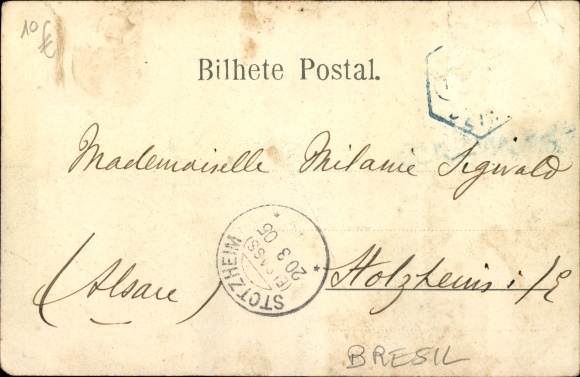 10 €
Bilhete Postal.
Mademoiselle Milanie Sigwald
STOTZHEIM
(ELSASS)
20 3 05
(Alsace) Stotzheim i/E
BRESIL